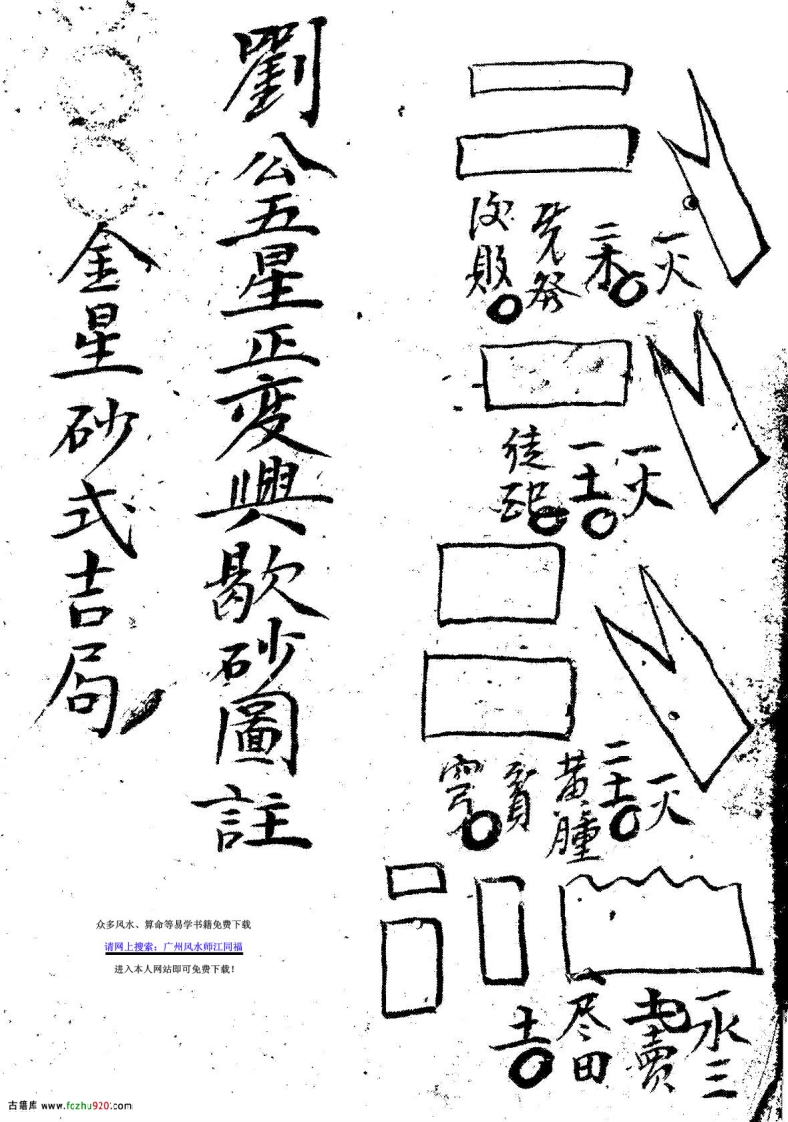 一火
二木
先發
後敗
一火
一土
徒
一火
二土
黃腫
貧
窮
一水三
土賣
尽田
土
劉公五星正变興歇砂圖註
金星砂式吉局
众多风水、算命等易学书籍免费下载
请网上搜索：广州风水师江同福
进入本人网站即可免费下载！
古籍库 www.fczhu920.com